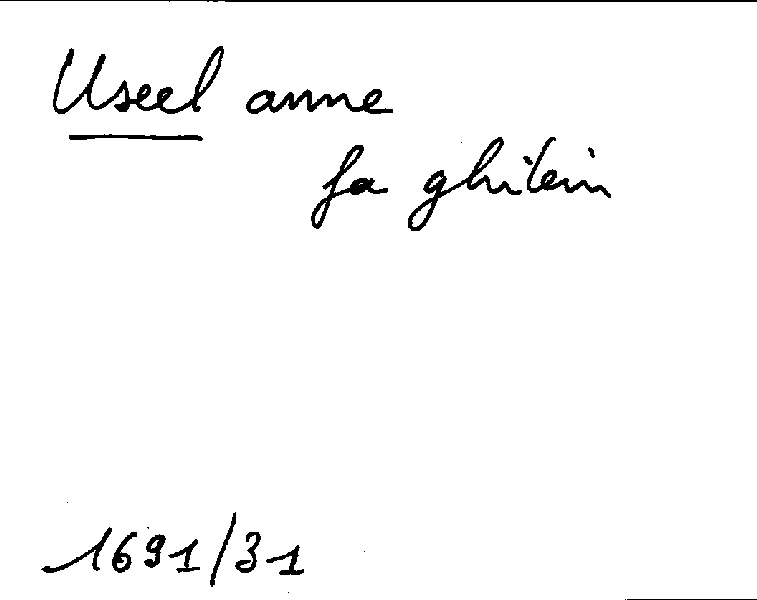 Useel anne
fa ghilein
1691/31